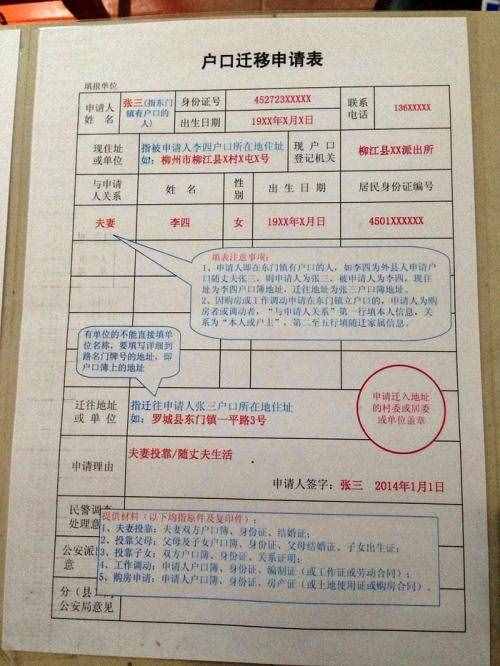 户口迁移申请表
填报单位
申请人
姓 名
张三(指东门
镇有户口的
人)
身份证号
452723XXXXX
出生日期
19XX年X月X日
联系
电话
136XXXXX
现住址
或单位
指被申请人李四户口所在地住址
如：柳州市柳江县X村X屯X号
现 户 口
登记机关
柳江县XX派出所
与申请
人关系
姓 名
性
别
出 生 日 期
居民身份证编号
夫妻
李四
女
19XX年X月X日
4501XXXXXX
填表注意事项：
1、申请人即在东门镇有户口的人，如李四为外县人申请户
口随丈夫张三，则申请人为张三，被申请人为李四，现住
址为李四户口簿地址，迁往地址为张三户口簿地址。
2、因购房或工作调动申请在东门镇立户口的，申请人为购
房者或调动者，“与申请人关系”第一行填本人信息，关
系为“本人或户主”，第二至五行填随迁家属信息。
有单位的不能直接填单
位名称，要填写详细到
路名门牌号的地址，即
户口簿上的地址
迁往地址
或 单 位
指迁往申请人张三户口所在地住址
如：罗城县东门镇一平路3号
申请迁入地址
的村委或居委
或单位盖章
申请理由
夫妻投靠/随丈夫生活
申请人签字：张三 2014年1月1日
民警调查
处理意
提供材料（以下均指原件及复印件）：
1、夫妻投靠：夫妻双方户口簿、身份证、结婚证；
2、投靠父母：父母及子女户口簿、身份证、父母结婚证、子女出生证；
3、投靠子女：双方户口簿、身份证、关系证明；
4、工作调动：申请人户口簿、身份证、编制证（或工作证或劳动合同）；
5、购房申请：申请人户口簿、身份证、房产证（或土地使用证或购房合同）。
公安派
意
分（县
公安局意见